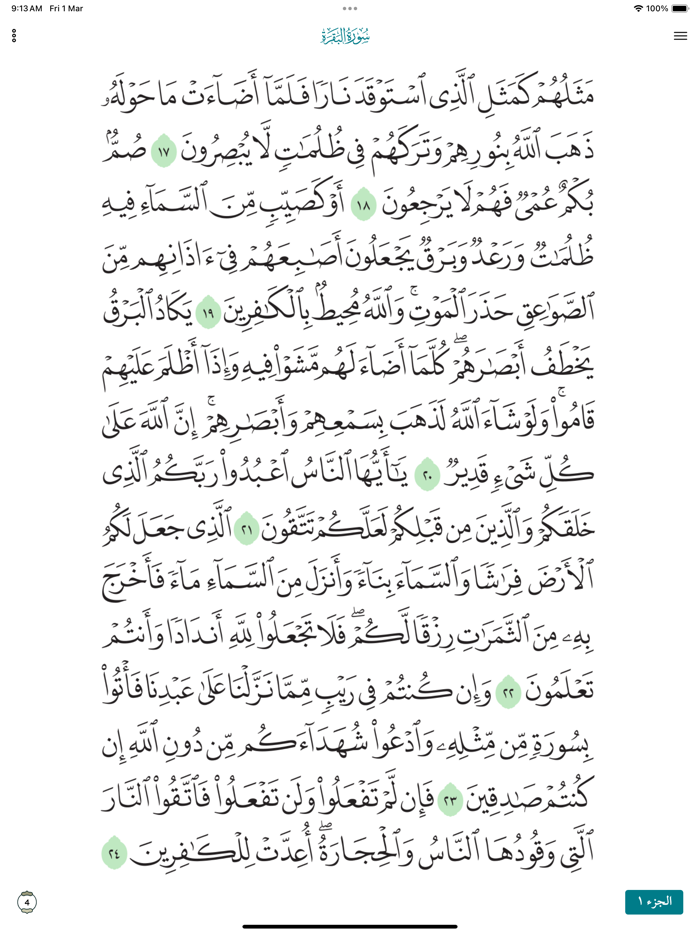 9:13 AM Fri 1 Mar
100%
سُورَةُ الْبَقَرَةِ
مَثَلُهُمْ كَمَثَلِ ٱلَّذِى ٱسْتَوْقَدَ نَارًا فَلَمَّآ أَضَآءَتْ مَا حَوْلَهُۥ
ذَهَبَ ٱللَّهُ بِنُورِهِمْ وَتَرَكَهُمْ فِى ظُلُمَٰتٍ لَّا يُبْصِرُونَ ١٧ صُمٌّۢ
بُكْمٌ عُمْىٌ فَهُمْ لَا يَرْجِعُونَ ١٨ أَوْ كَصَيِّبٍ مِّنَ ٱلسَّمَآءِ فِيهِ
ظُلُمَٰتٌ وَرَعْدٌ وَبَرْقٌ يَجْعَلُونَ أَصَٰبِعَهُمْ فِىٓ ءَاذَانِهِم مِّنَ
ٱلصَّوَٰعِقِ حَذَرَ ٱلْمَوْتِ ۚ وَٱللَّهُ مُحِيطٌۢ بِٱلْكَٰفِرِينَ ١٩ يَكَادُ ٱلْبَرْقُ
يَخْطَفُ أَبْصَٰرَهُمْ ۖ كُلَّمَآ أَضَآءَ لَهُم مَّشَوْا۟ فِيهِ وَإِذَآ أَظْلَمَ عَلَيْهِمْ
قَامُوا۟ ۚ وَلَوْ شَآءَ ٱللَّهُ لَذَهَبَ بِسَمْعِهِمْ وَأَبْصَٰرِهِمْ ۚ إِنَّ ٱللَّهَ عَلَىٰ
كُلِّ شَىْءٍ قَدِيرٌ ٢٠ يَٰٓأَيُّهَا ٱلنَّاسُ ٱعْبُدُوا۟ رَبَّكُمُ ٱلَّذِى
خَلَقَكُمْ وَٱلَّذِينَ مِن قَبْلِكُمْ لَعَلَّكُمْ تَتَّقُونَ ٢١ ٱلَّذِى جَعَلَ لَكُمُ
ٱلْأَرْضَ فِرَٰشًا وَٱلسَّمَآءَ بِنَآءً وَأَنزَلَ مِنَ ٱلسَّمَآءِ مَآءً فَأَخْرَجَ
بِهِۦ مِنَ ٱلثَّمَرَٰتِ رِزْقًا لَّكُمْ ۖ فَلَا تَجْعَلُوا۟ لِلَّهِ أَندَادًا وَأَنتُمْ
تَعْلَمُونَ ٢٢ وَإِن كُنتُمْ فِى رَيْبٍ مِّمَّا نَزَّلْنَا عَلَىٰ عَبْدِنَا فَأْتُوا۟
بِسُورَةٍ مِّن مِّثْلِهِۦ وَٱدْعُوا۟ شُهَدَآءَكُم مِّن دُونِ ٱللَّهِ إِن
كُنتُمْ صَٰدِقِينَ ٢٣ فَإِن لَّمْ تَفْعَلُوا۟ وَلَن تَفْعَلُوا۟ فَٱتَّقُوا۟ ٱلنَّارَ
ٱلَّتِى وَقُودُهَا ٱلنَّاسُ وَٱلْحِجَارَةُ ۖ أُعِدَّتْ لِلْكَٰفِرِينَ ٢٤
4
الجزء ١